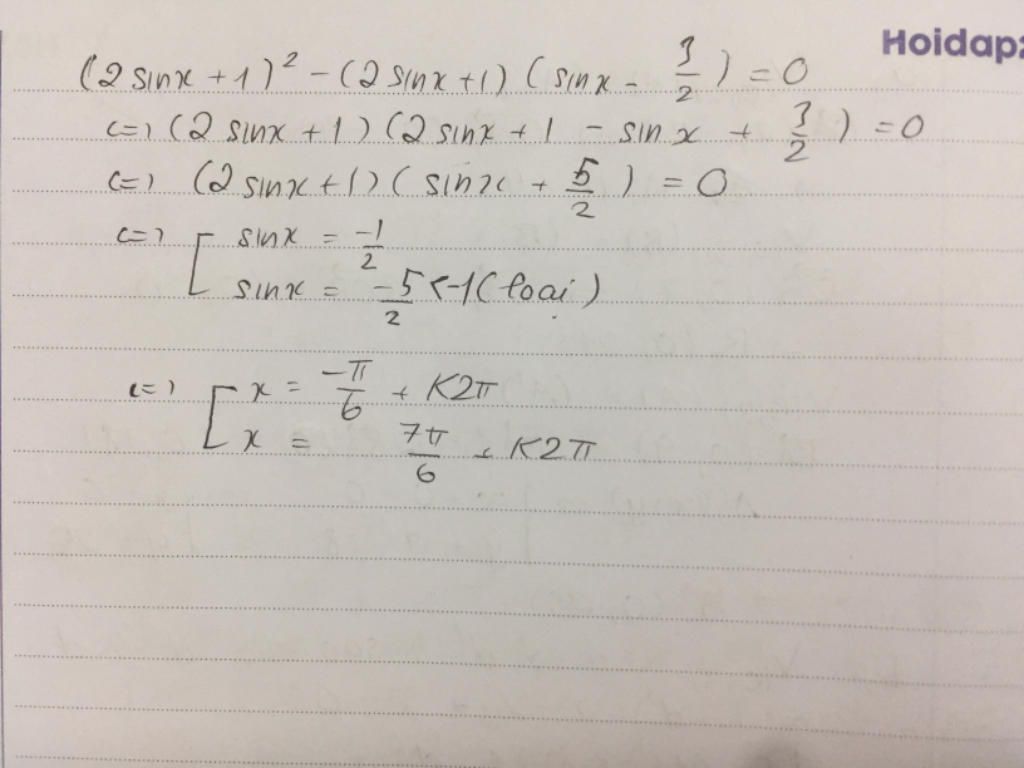 Hoidap
(2 sinx + 1)² - (2 sinx + 1) (sinx - 3/2) = 0
<=> (2 sinx + 1) (2 sinx + 1 - sin x + 3/2) = 0
<=> (2 sinx + 1) (sinx + 5/2) = 0
<=> [ sinx = -1/2
sinx = -5/2 < -1 (loại)
<=> [ x = -π/6 + K2π
x = 7π/6 + K2π